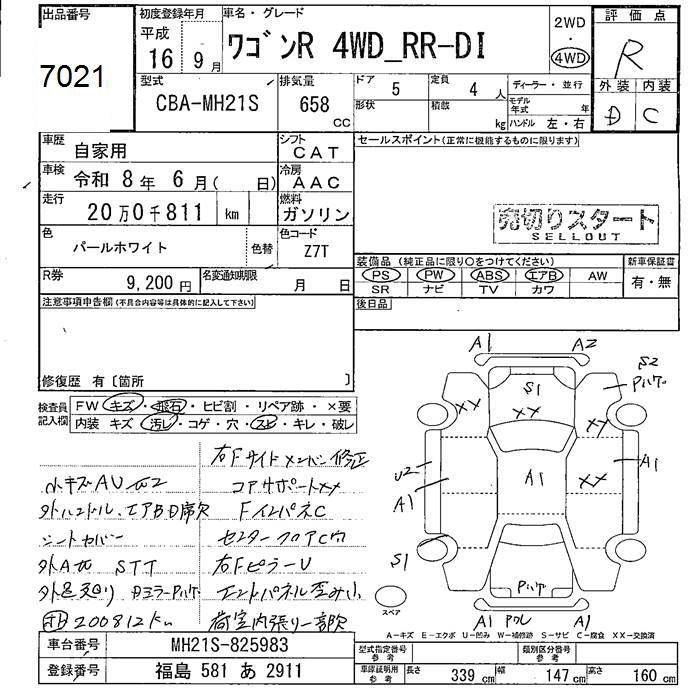 出品番号
7021
初度登録年月
平成
16 9月
車名・グレード
ワゴンR 4WD_RR-DI
2WD
・
4WD
評価点
R
外装 内装
D C
型式
CBA-MH21S
排気量
658
CC
ドア
5
定員
4 人
形状
積載
kg
ディーラー・並行
モデル年式 年
ハンドル 左・右
車歴
自家用
シフト
CAT
車検
令和 8年 6月( 日)
冷房
AAC
走行
20万0千811 km
燃料
ガソリン
色
パールホワイト
色替
色コード
Z7T
R券
9,200円
名変通知期限
月 日
セールスポイント(正常に機能するものに限ります)
売切りスタート
SELLOUT
装備品(純正品に限り○をつけてください)
PS PW ABS エアB AW
SR ナビ TV カワ
新車保証書
有・無
後日品
注意事項申告欄(不具合内容等は具体的に記入して下さい)
修復歴 有〔箇所 〕
検査員記入欄
FW キズ・飛石・ヒビ割・リペア跡・×要
内装 キズ 汚れ・コゲ・穴・スレ・キレ・破レ
右Fサイドメンバー修正
小キズAU
コアサポートXX
外ハンドル、エアB
FインパネC
シートカバー
センターフロアC穴
外A STT
右FピラーU
外足廻り Dミラーハゲ
エンドパネル歪み小
200812km
荷室内張り一部欠
A1 A2
S2
ハゲ
S1
XX XX XX
U2
A1
A1
XX
A1
S1
ハゲ
スペア
A1 ワレ A1
A-キズ E-エクボ U-凹み W-補修跡 S-サビ C-腐食 XX-交換済
車台番号
MH21S-825983
登録番号
福島 581 あ 2911
型式指定番号
参考
類別区分番号
参考
車庫証明用
参考
長さ 339 cm
幅 147 cm
高さ 160 cm